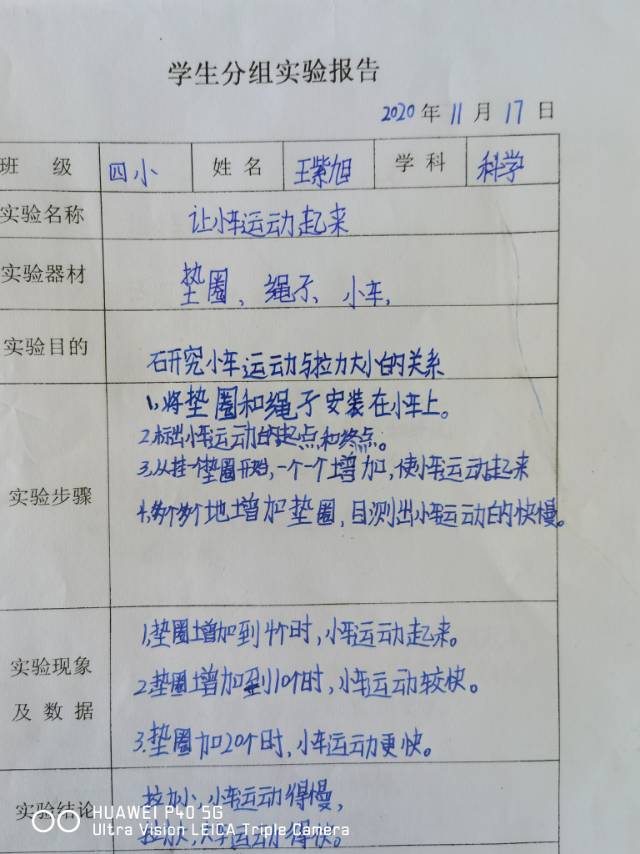 学生分组实验报告
2020年11月17日
班 级 四小 姓名 王紫旭 学科 科学
实验名称 让小车运动起来
实验器材 垫圈、绳子、小车,
实验目的 研究小车运动与拉力大小的关系
实验步骤
1、将垫圈和绳子安装在小车上。
2.标出小车运动的起点和终点。
3.从挂一个垫圈开始,一个一个增加,使小车运动起来
4.多个多个地增加垫圈,目测出小车运动的快慢。
实验现象
及数据
1.垫圈增加到4个时,小车运动起来。
2.垫圈增加到10个时,小车运动较快。
3.垫圈加20个时,小车运动更快。
实验结论
拉力小,小车运动得慢,
拉力大,小车运动得快。
HUAWEI P40 5G
Ultra Vision LEICA Triple Camera